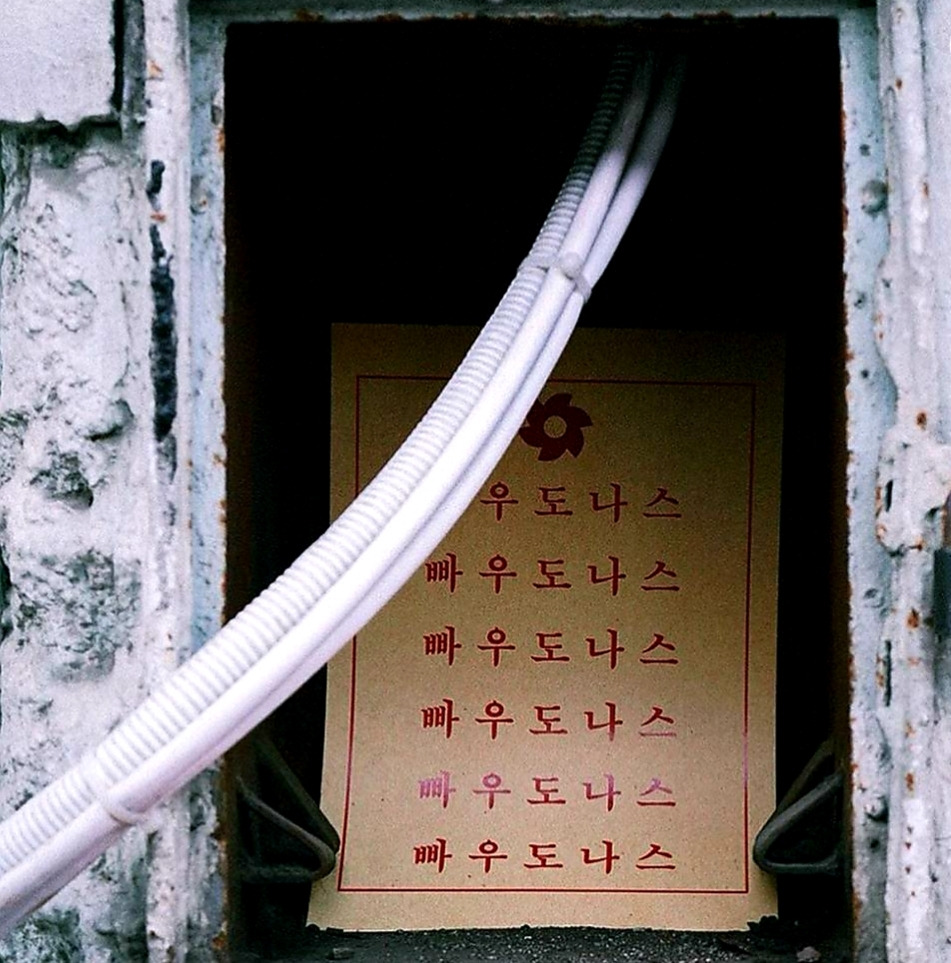 우도나스
빠우도나스
빠우도나스
빠우도나스
빠우도나스
빠우도나스